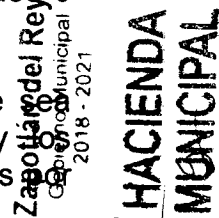 Zapotlán del Rey
Gobierno Municipal
2018 - 2021
HACIENDA
MUNICIPAL